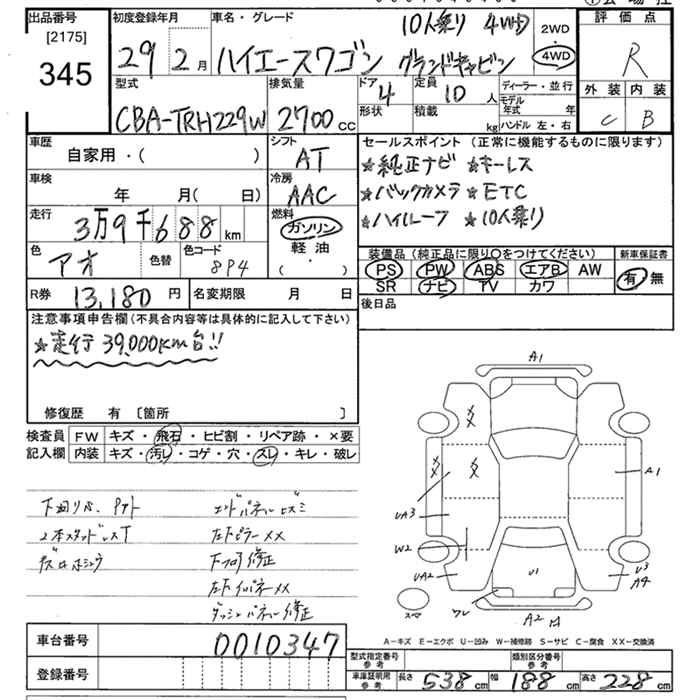 出品番号 初度登録年月 車名・グレード 10人乗り 4WD 2WD 評価点
[2175]
345 29 2月 ハイエースワゴン グランドキャビン 4WD R
型式 排気量 ドア 定員 ディーラー・並行 外装 内装
CBA-TRH229W 2700cc 4 10人 モデル年式 年 C B
形状 積載 kg ハンドル 左・右
車歴 シフト セールスポイント(正常に機能するものに限ります)
自家用・( ) AT ★純正ナビ ★キーレス
車検 冷房
年 月( 日) AAC ★バックカメラ ★ETC
走行 燃料
3万9千688km ガソリン ★ハイルーフ ★10人乗り
色 色替 色コード 軽油
アオ 8P4 (・)
装備品(純正品に限り○をつけてください) 新車保証書
PS PW ABS エアB AW 有・無
SR ナビ TV カワ
R券 13,180円 名変期限 月 日 後日品
注意事項申告欄(不具合内容等は具体的に記入して下さい)
★走行39,000km台!!
修復歴 有 [箇所 ]
検査員 FW キズ・飛石・ヒビ割・リペア跡・×要
記入欄 内装 キズ・汚レ・コゲ・穴・スレ・キレ・破レ
A1
A1
UA3
W2
UA2
U1
U3
A4
A2
下回りサビ
2本スタッドレス
エンドパネルヒズミ
左下ピラーXX
下フロア修正
修正
A-キズ E-エクボ U-凹み W-補修跡 S-サビ C-腐食 XX-交換済
車台番号 0010347
登録番号
型式指定番号 参考 類別区分番号 参考
車庫証明用 参考 長さ 538cm 幅 188cm 高さ 228cm